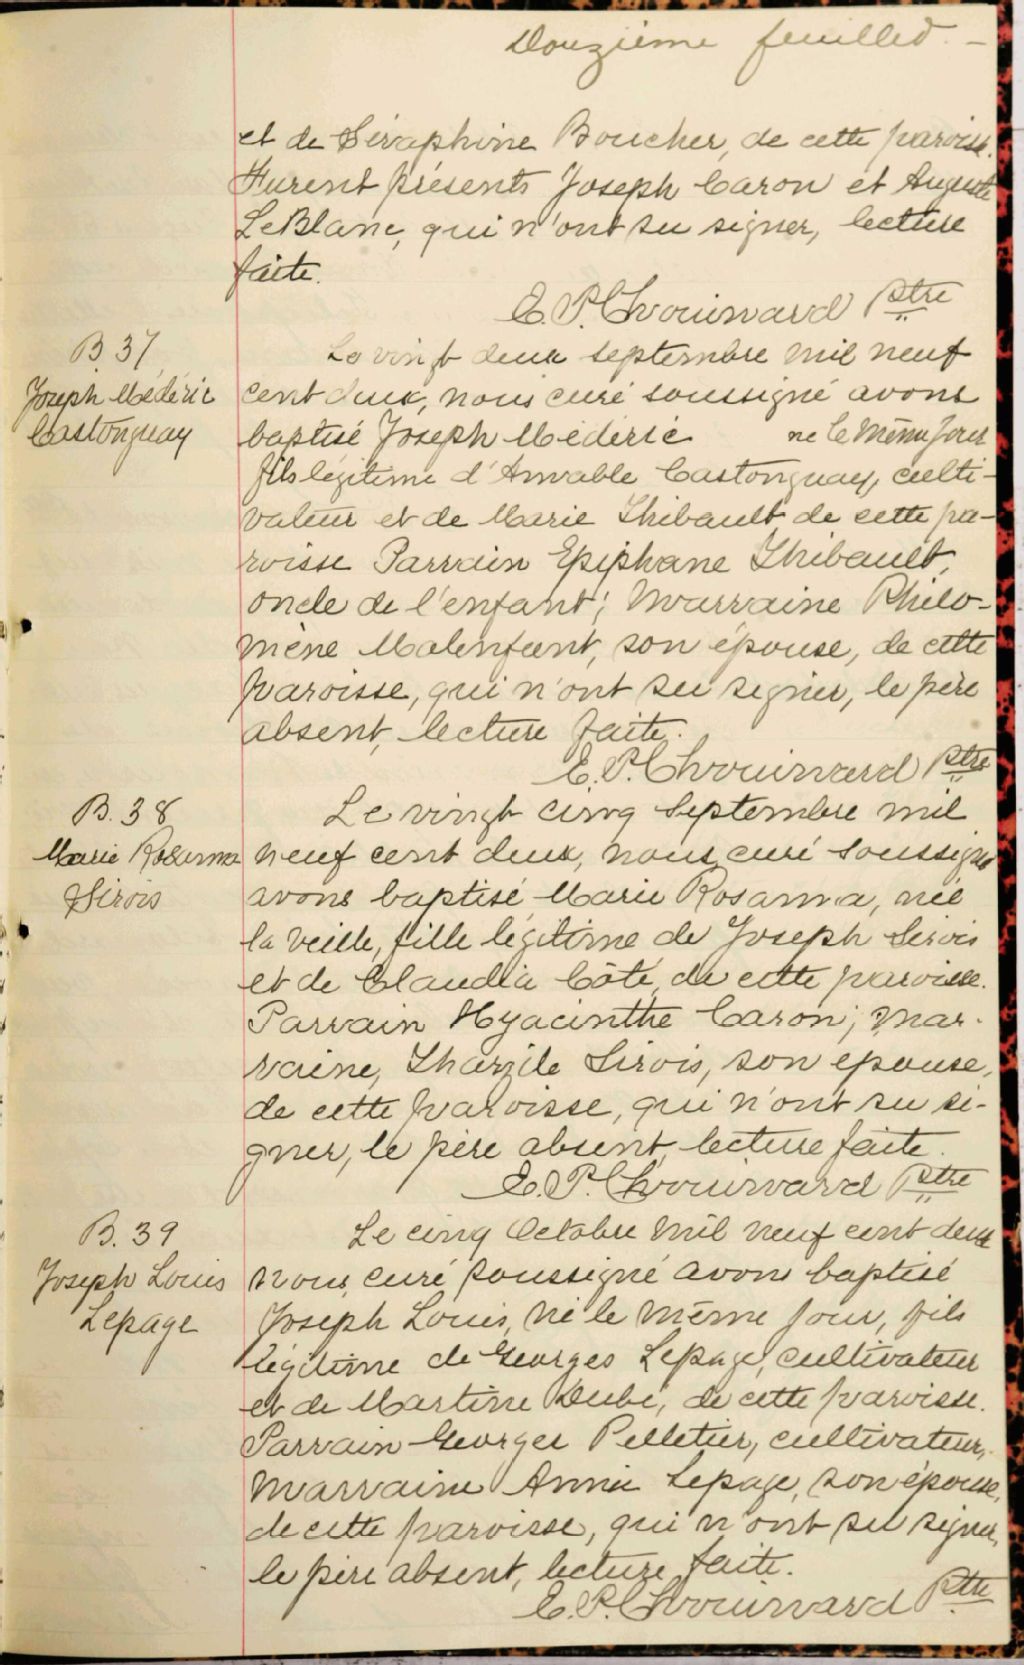 Douzième feuillet. -
et de Séraphine Boucher, de cette paroisse.
Furent présents Joseph Caron et Auguste
LeBlanc, qui n'ont su signer, lecture
faite.
E. P. Chouinard Ptre
B 37
Joseph Médéric
Castonguay
Le vingt deux septembre mil neuf
cent deux, nous curé soussigné avons
baptisé Joseph Médéric né le même jour
fils légitime d'Amable Castonguay, culti-
vateur et de Marie Thibault de cette pa-
roisse Parrain Epiphane Thibault,
oncle de l'enfant; marraine Philo-
mène Malenfant, son épouse, de cette
paroisse, qui n'ont su signer, le père
absent, lecture faite.
E. P. Chouinard Ptre
B. 38
Marie Rosanna
Sirois
Le vingt cinq Septembre mil
neuf cent deux, nous, curé soussigné
avons baptisé Marie Rosanna, née
la veille, fille légitime de Joseph Sirois
et de Claudia Côté, de cette paroisse.
Parrain Hyacinthe Caron; mar-
raine, Tharzile Sirois, son epouse,
de cette paroisse, qui n'ont su si-
gner, le père absent, lecture faite.
E. P. Chouinard Ptre
B. 39
Joseph Louis
Lepage
Le cinq Octobre mil neuf cent deux
nous, curé soussigné avons baptisé
Joseph Louis, né le même jour, fils
légitime de Georges Lepage, cultivateur
et de Martine Dubé, de cette paroisse.
Parrain Georges Pelletier, cultivateur,
marraine Annie Lepage, son épouse,
de cette paroisse, qui n'ont su signer,
le père absent, lecture faite.
E. P. Chouinard Ptre